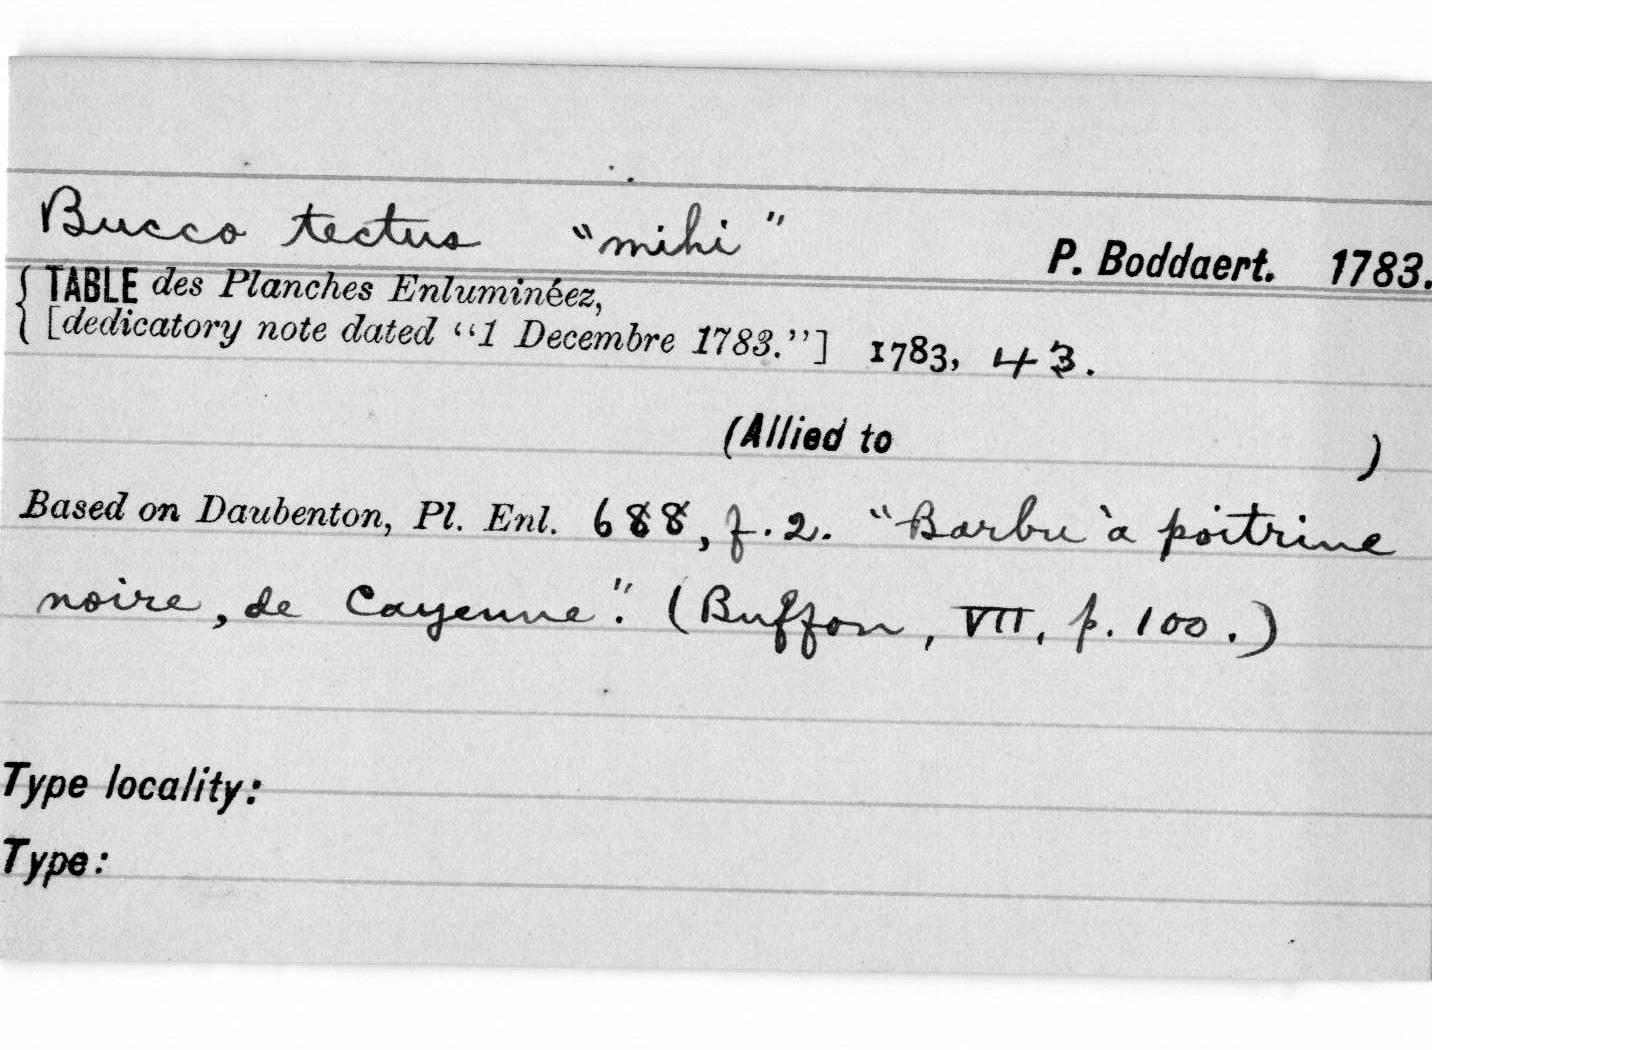 Bucco tectus "mihi" P. Boddaert. 1783.
{ TABLE des Planches Enluminéez,
[dedicatory note dated "1 Decembre 1783."] 1783, 43.
(Allied to )
Based on Daubenton, Pl. Enl. 688, f. 2. "Barbu à poitrine
noire, de Cayenne". (Buffon, VII, p. 100.)
Type locality:
Type: